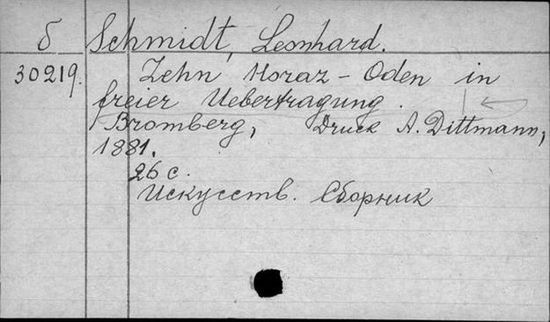 б Schmidt, Leonhard.
30219. Zehn Horaz-Oden in
freier Uebertragung.
Bromberg, Druck A. Dittmann,
1881.
26 с.
Искусств. Сборник